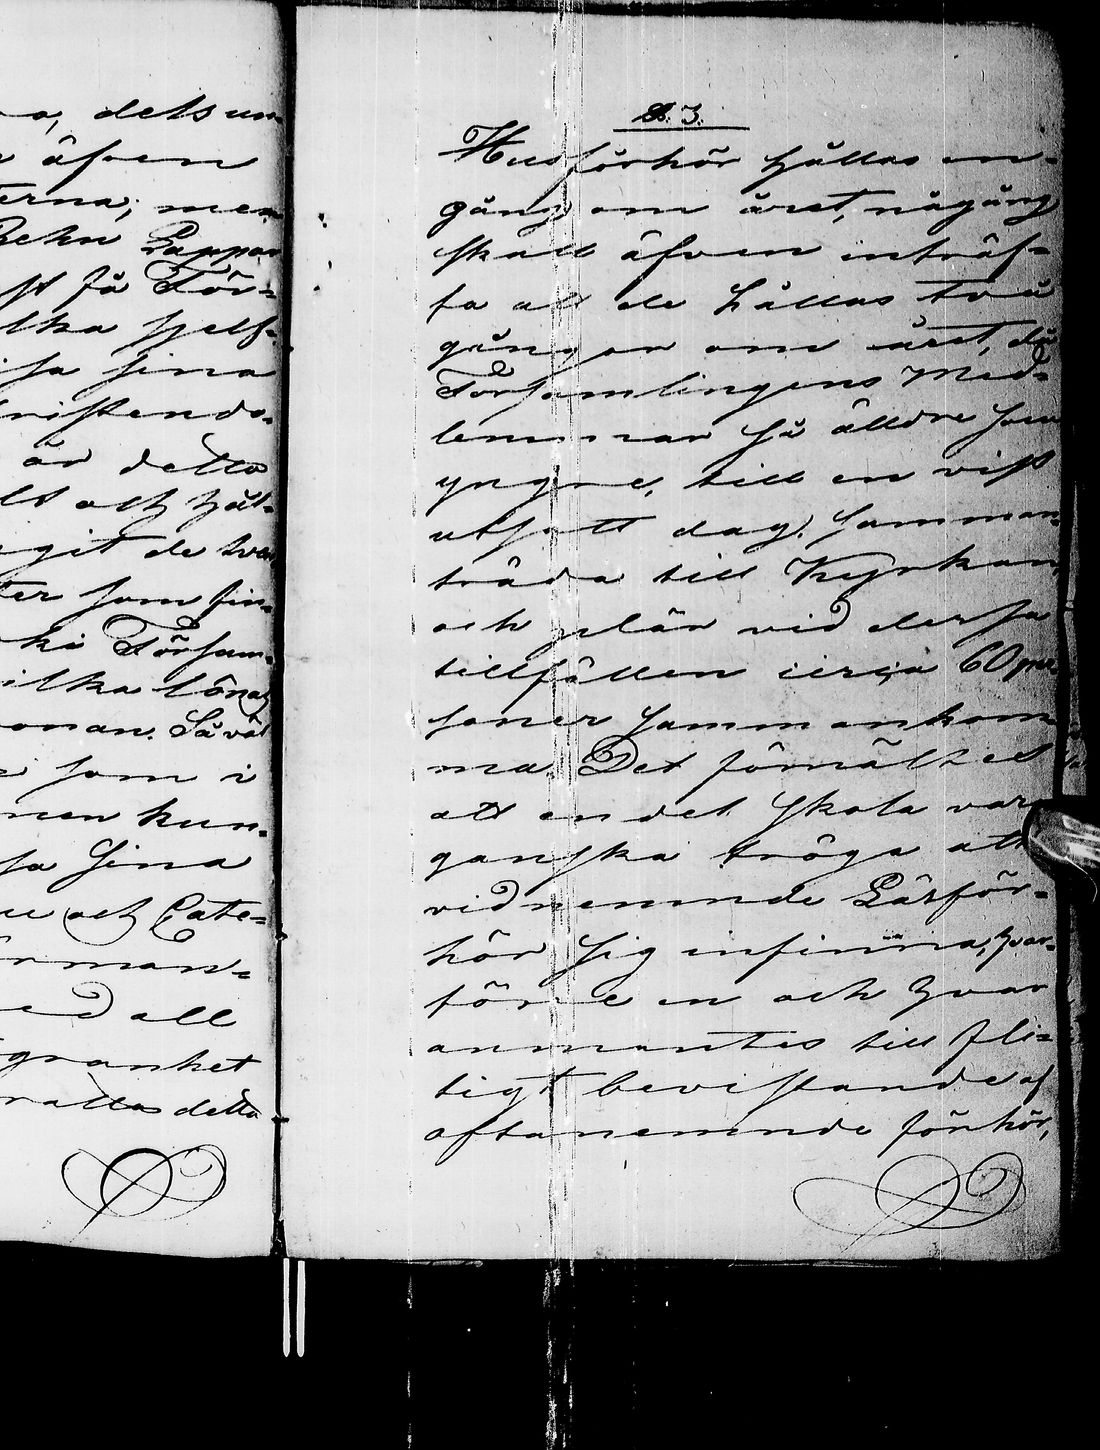 o, dels un-
äfven
terna; men
Zehn Lappar
st få För-
lka sjelf-
sa sina
kristendo-
är detta
lt och häl-
git de två
ter som fin-
ki Försam-
ilka lönas
onan. Så väl
som i
men kun-
sa Sina
och Cate-
rman-
ed all
granhet
rättas detta
§. 3.
Husförhör hållas en-
gång om året, någång
skall äfven inträf-
fa att de hållas två
gångor om året, då
Församlingens Med-
lemmar så älldre som
yngre, till en visst
utsatt dag, samman-
träda till Kyrkan,
och plär vid dessa
tillfällen circa 60 per-
soner sammankom-
ma. Det förmältes
att en del skola vara
ganska tröga att
vid nemnde Läsför-
hör sig infinna, hvar-
före en och hvar
anmantes till fli-
tigt bevistande af
oftanemnde förhör,